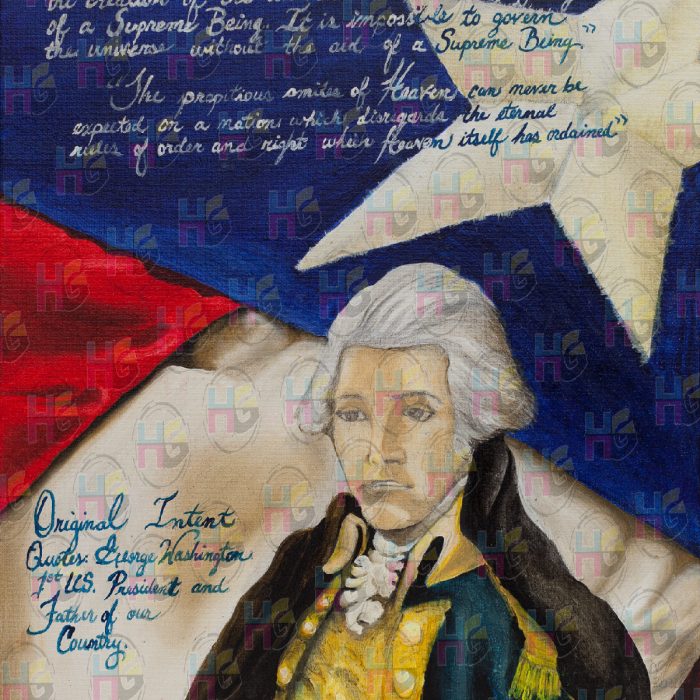 of a Supreme Being. It is impossible to govern
the universe without the aid of a Supreme Being"
"The propitious smiles of Heaven can never be
expected on a nation which disregards the eternal
rules of order and right which Heaven itself has ordained"
Original Intent
Quotes: George Washington
1st U.S. President and
Father of our
Country.